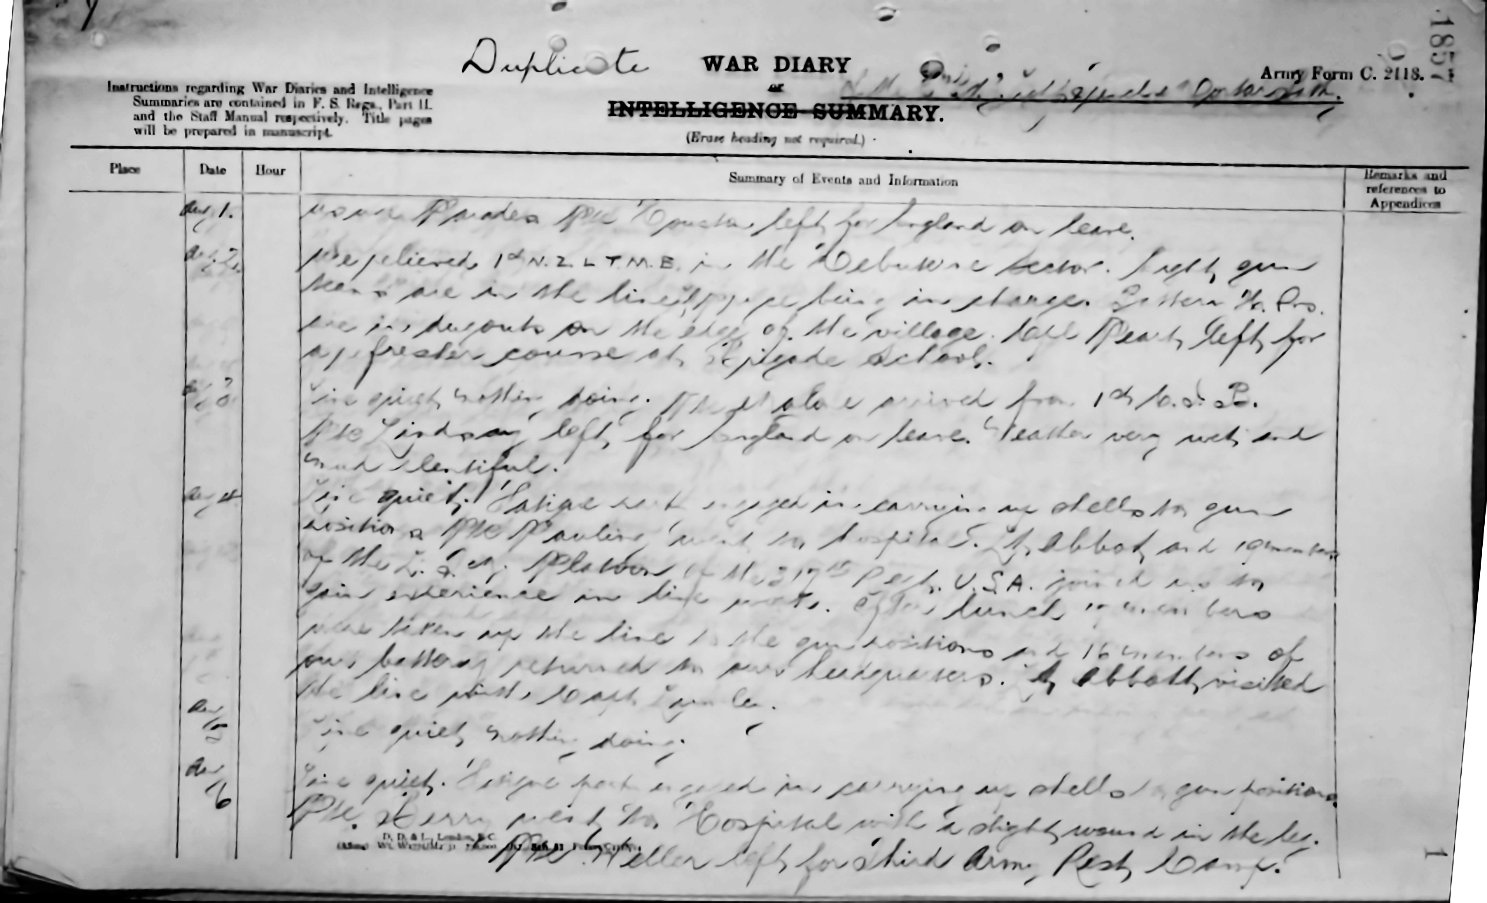 Duplicate
WAR DIARY
or
INTELLIGENCE SUMMARY.
(Erase heading not required.)
Army Form C. 2118.
1857
Instructions regarding War Diaries and Intelligence
Summaries are contained in F. S. Regs., Part II.
and the Staff Manual respectively. Title pages
will be prepared in manuscript.
Place Date Hour Summary of Events and Information Remarks and references to Appendices
Aug 1. Parades Pte left for England on leave.
Aug 2 We relieved 1st N.Z. L.T.M.B. in the Hebuterne Sector. Eight gun
teams are in the line, being in charge. Battery H. Qrs.
are in dugouts on the edge of the village. left for
a refresher course at Brigade School.
Aug 3 Line quiet, nothing doing. Pte arrived from 1st
Pte Lindsay left for England on leave. Weather very wet and
mud plentiful.
Aug 4 Line quiet. Fatigue party engaged in carrying up shells to gun
positions Pte Pauling went to hospital. Lt Abbott and 19 members
of the Platoon of the 317th Regt. U.S.A. joined us to
gain experience in line work. After lunch members
were taken up the line to the gun positions and 16 members of
our battery returned to our headquarters. Lt Abbott visited
the line with Capt
Aug 5 Line quiet, nothing doing.
Aug 6 Line quiet. Fatigue party engaged in carrying up shells to gun positions.
Pte. went to Hospital with a slight wound in the leg.
Pte Weller left for Third Army Rest Camp.
D. D. & L., London, E.C.
1